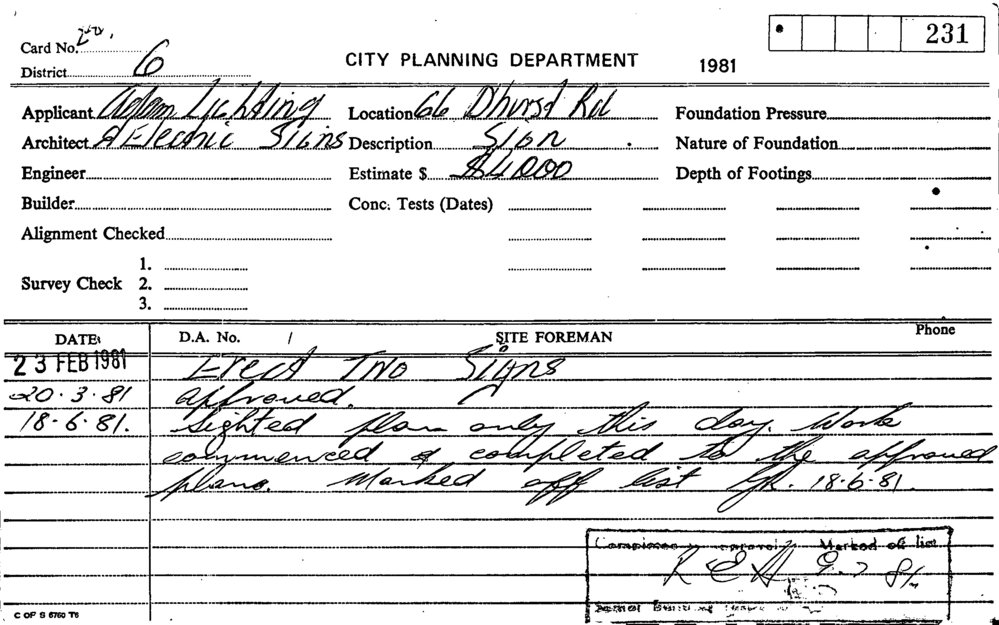 231
Card No.
District 6
CITY PLANNING DEPARTMENT 1981
Applicant Adam Lighting Location 66 Dhurst Rd Foundation Pressure
Architect & Electric Signs Description Sign Nature of Foundation
Engineer Estimate $ $4000 Depth of Footings
Builder Conc. Tests (Dates)
Alignment Checked
1.
Survey Check 2.
3.
DATE D.A. No. / SITE FOREMAN Phone
23 FEB 1981 Erect Two Signs
20.3.81 approved.
18.6.81. Sighted plan only this day. Work
commenced & completed to the approved
plans. Marked off list 18.6.81.
Marked off list
REH 9.7 81
C OF S 6760 T6